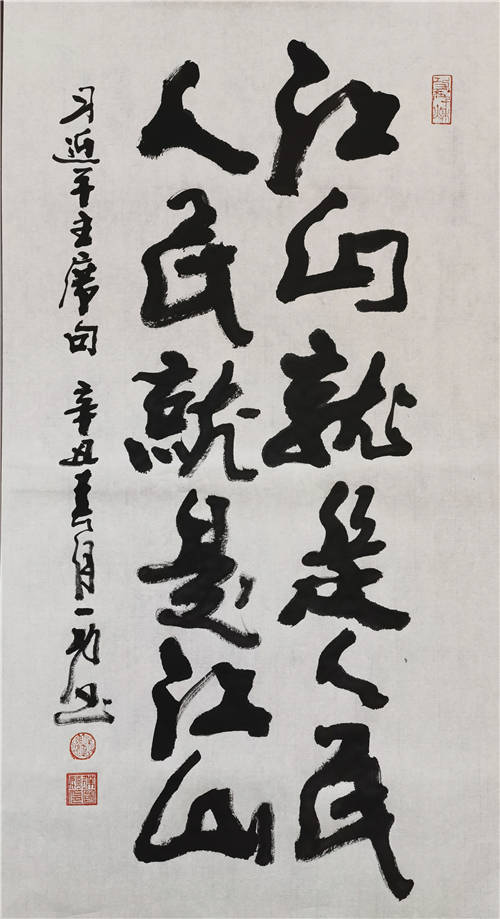 江山就是人民
人民就是江山
习近平主席句 辛丑春月一